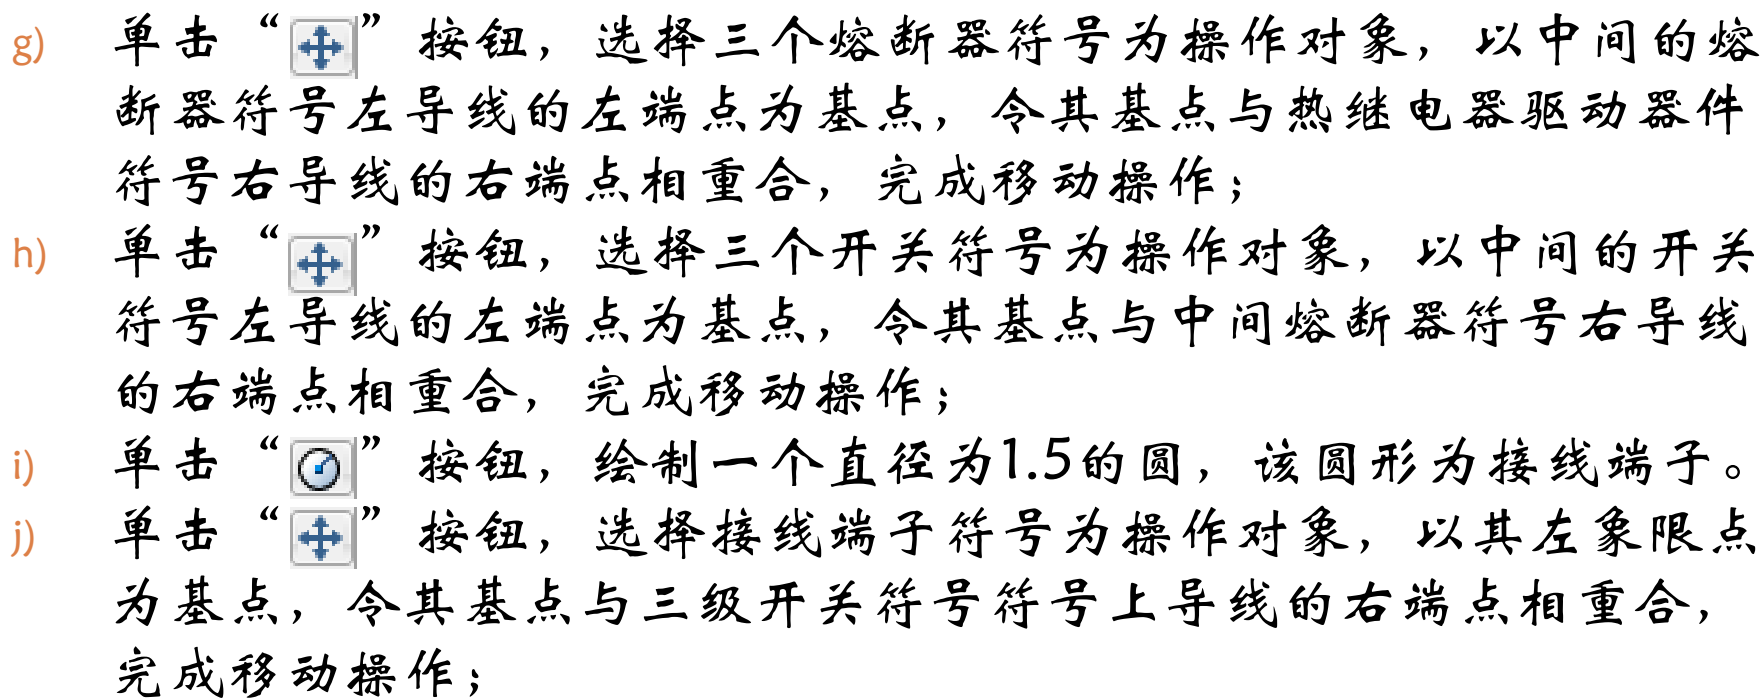 g) 单击“”按钮，选择三个熔断器符号为操作对象，以中间的熔
断器符号左导线的左端点为基点，令其基点与热继电器驱动器件
符号右导线的右端点相重合，完成移动操作；
h) 单击“”按钮，选择三个开关符号为操作对象，以中间的开关
符号左导线的左端点为基点，令其基点与中间熔断器符号右导线
的右端点相重合，完成移动操作；
i) 单击“”按钮，绘制一个直径为1.5的圆，该圆形为接线端子。
j) 单击“”按钮，选择接线端子符号为操作对象，以其左象限点
为基点，令其基点与三级开关符号符号上导线的右端点相重合，
完成移动操作；